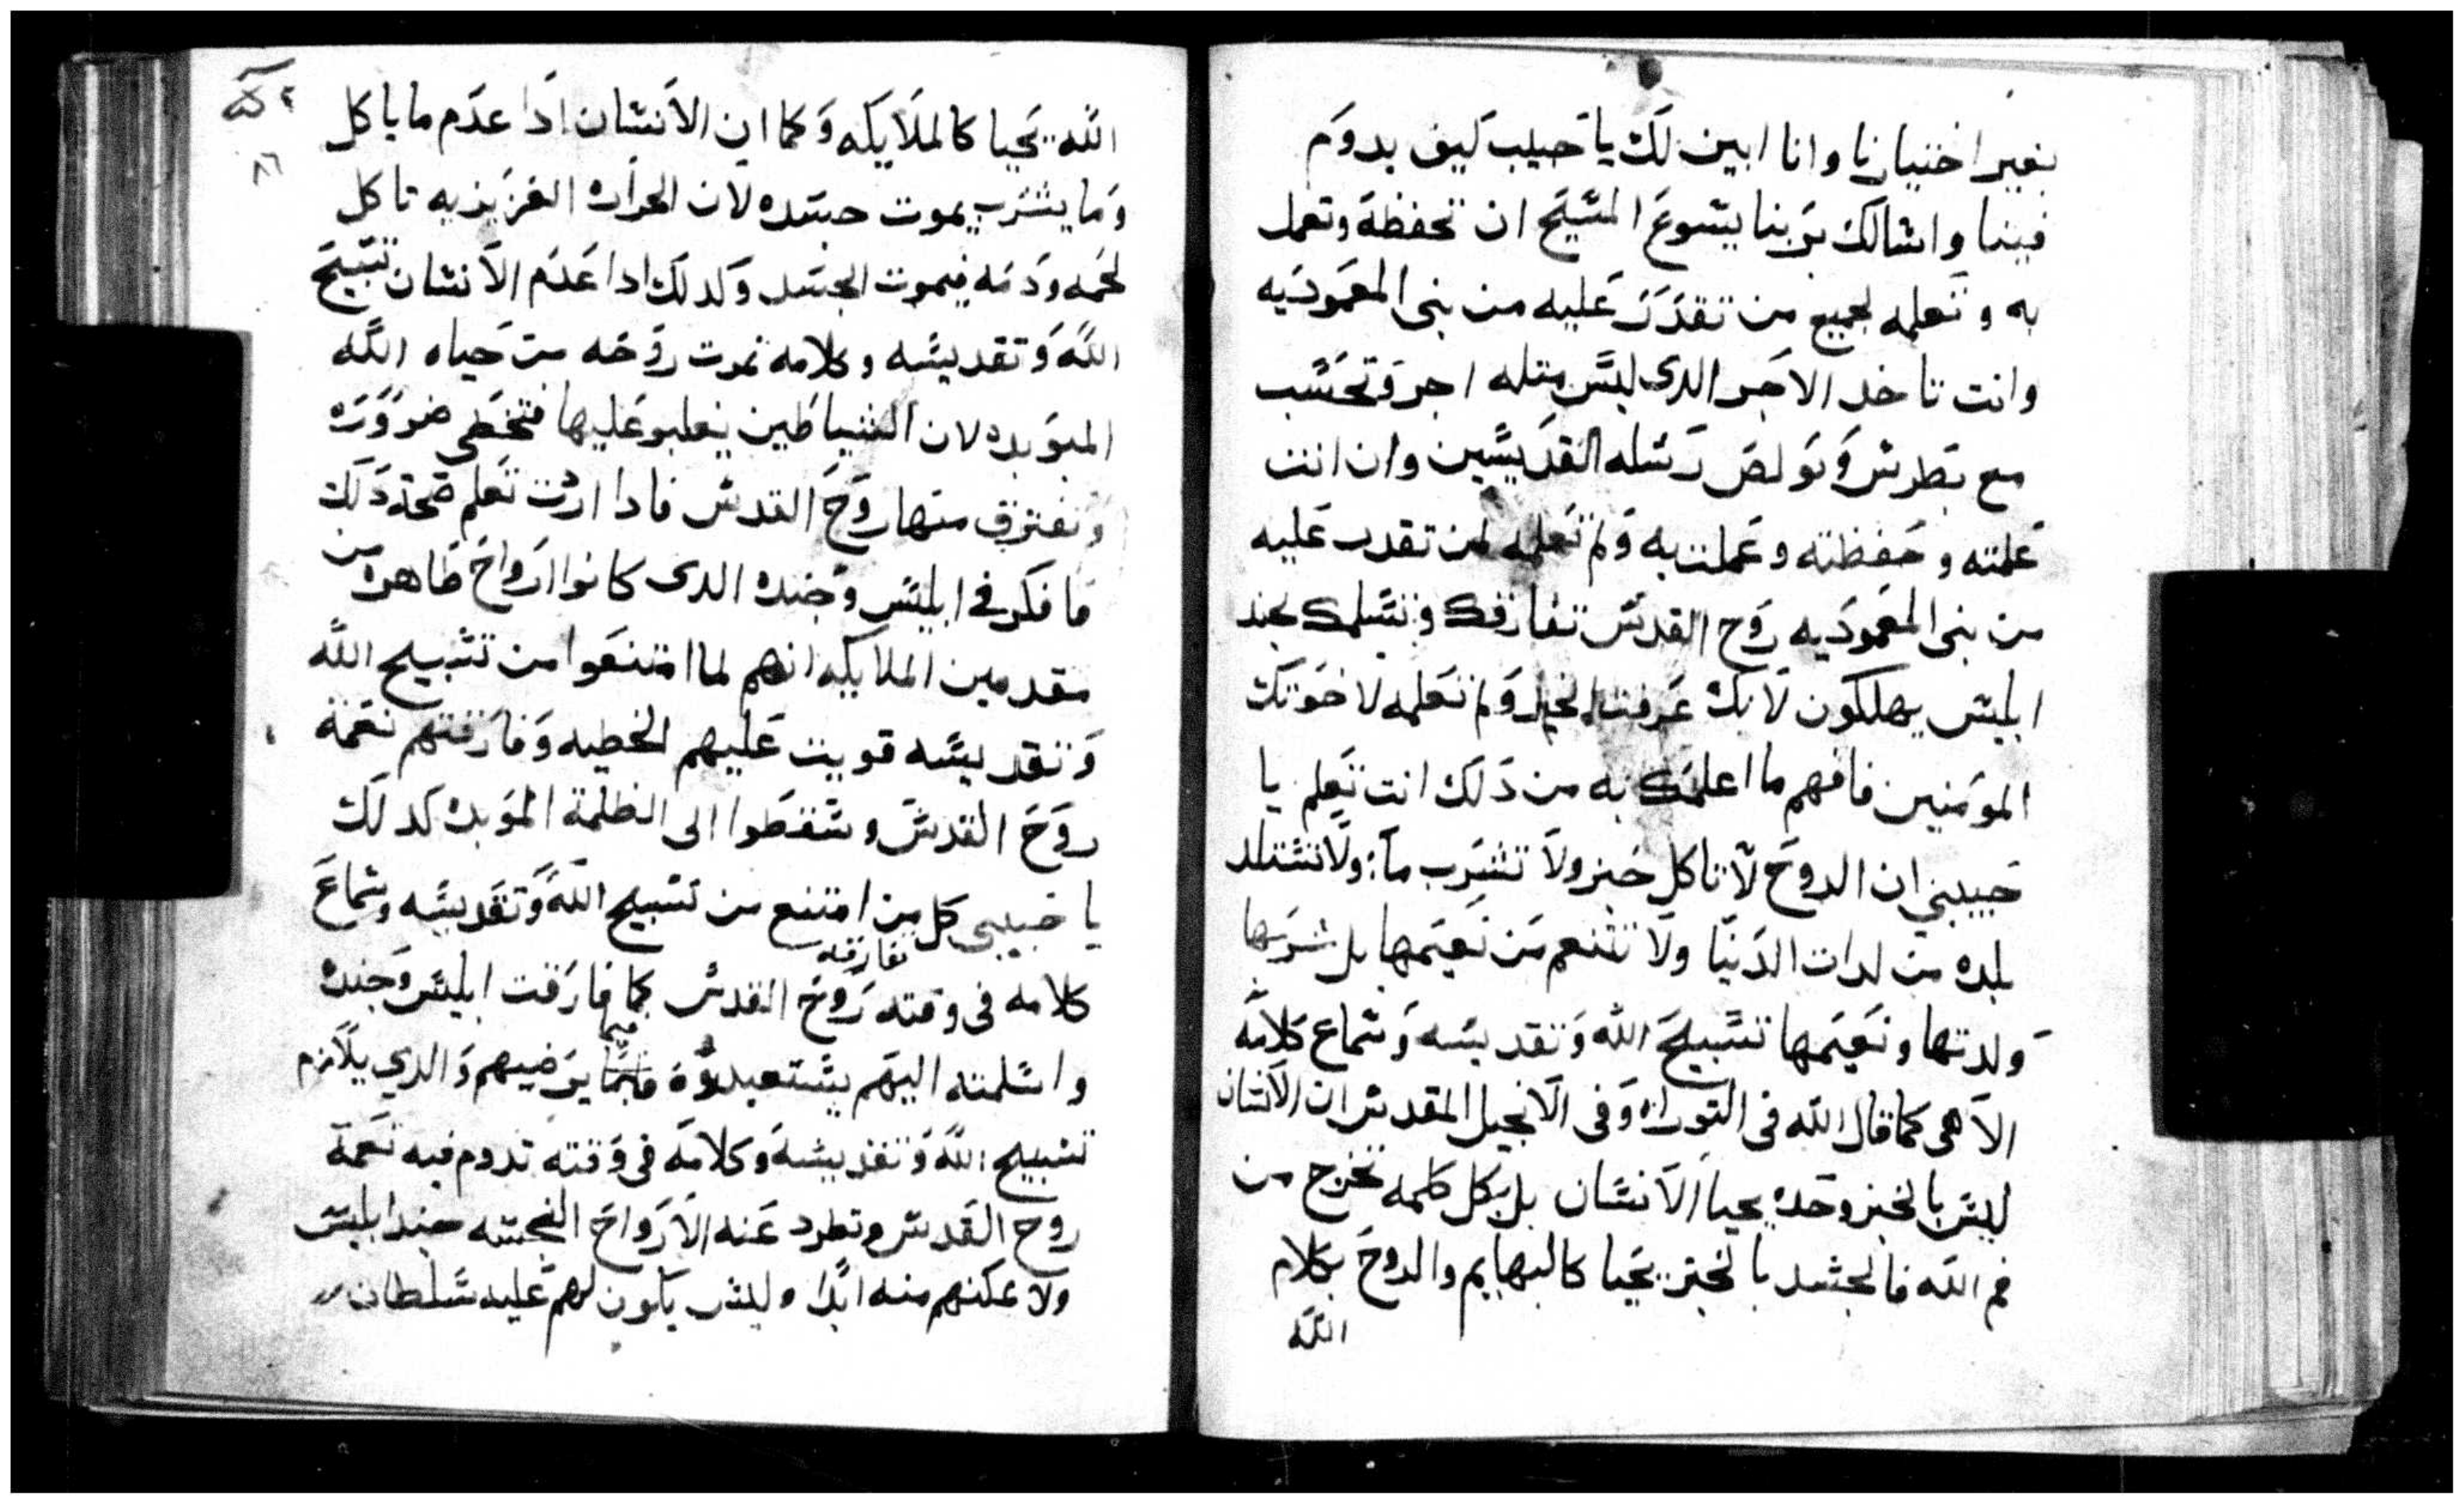 بغير اختيارنا وانا ابين لك يا حبيب كيف يدوم
فينا واسالك بربنا يسوع المسيح ان تحفظه وتعمل
به وتعلمه لجميع من تقدر عليه من بنى المعموديه
وانت تاخد الاجر الدى ليس متله اجر وتحسب
مع بطرس وبولص رسله القديسين وان انت
علمته وحفظته وعملت به ولم تعلمه لمن تقدر عليه
من بنى المعموديه روح القدس تفارقك وتسلمك لجند
ابليس يهلكون لانك عرفت الخير ولم تعلمه لاخوتك
المومنين فافهم ما اعلمك به من دلك انت تعلم يا
حبيبي ان الروح لا تاكل خبز ولا تشرب مآ ولا تستلد
بلده من لدات الدنيا ولا تتنعم من نعيمها بل شربها
ولدتها ونعيمها تسبيح الله وتقديسه وسماع كلامه
الآهى كما قال الله فى التوراه وفى الانجيل المقدس ان الانسان
ليس بالخبز وحده يحيا الانسان بل بكل كلمه تخرج من
فم الله فالجسد بالخبز يحيا كالبهايم والروح بكلام
الله
٨٦
الله يحيا كالملايكه وكما ان الانسان ادا عدم ما ياكل
وما يشرب يموت جسده لان الحراره الغريزيه تاكل
لحمه ودمه فيموت الجسد وكدلك ادا عدم الانسان تسبيح
الله وتقديسه وكلامه تموت روحه من حياه الله
الموبده لان الشياطين يغلبو عليها فتخطى ضروره
وتفترق منها روح القدس فادا اردت تعلم صحة دلك
فافكر فى ابليس وجنده الدى كانوا ارواح طاهره من
مقدمين الملايكه انهم لما امتنعوا من تسبيح الله
وتقديسه قويت عليهم الخطيه وفارقتهم نعمة
روح القدس وسقطوا الى الظلمة الموبده كدلك
يا حبيبى كل من امتنع من تسبيح الله وتقديسه وسماع
كلامه فى وقته تفارقه روح القدس كما فارقت ابليس وجنده
واسلمته اليهم يستعبدوه فيما يرضيهم والدي يلازم
تسبيح الله وتقديسه وكلامه فى وقته تدوم فيه نعمة
روح القدس وتطرد عنه الارواح النجسه جند ابليس
ولا يمكنهم منه ابدا وليس يكون لهم عليه سلطان